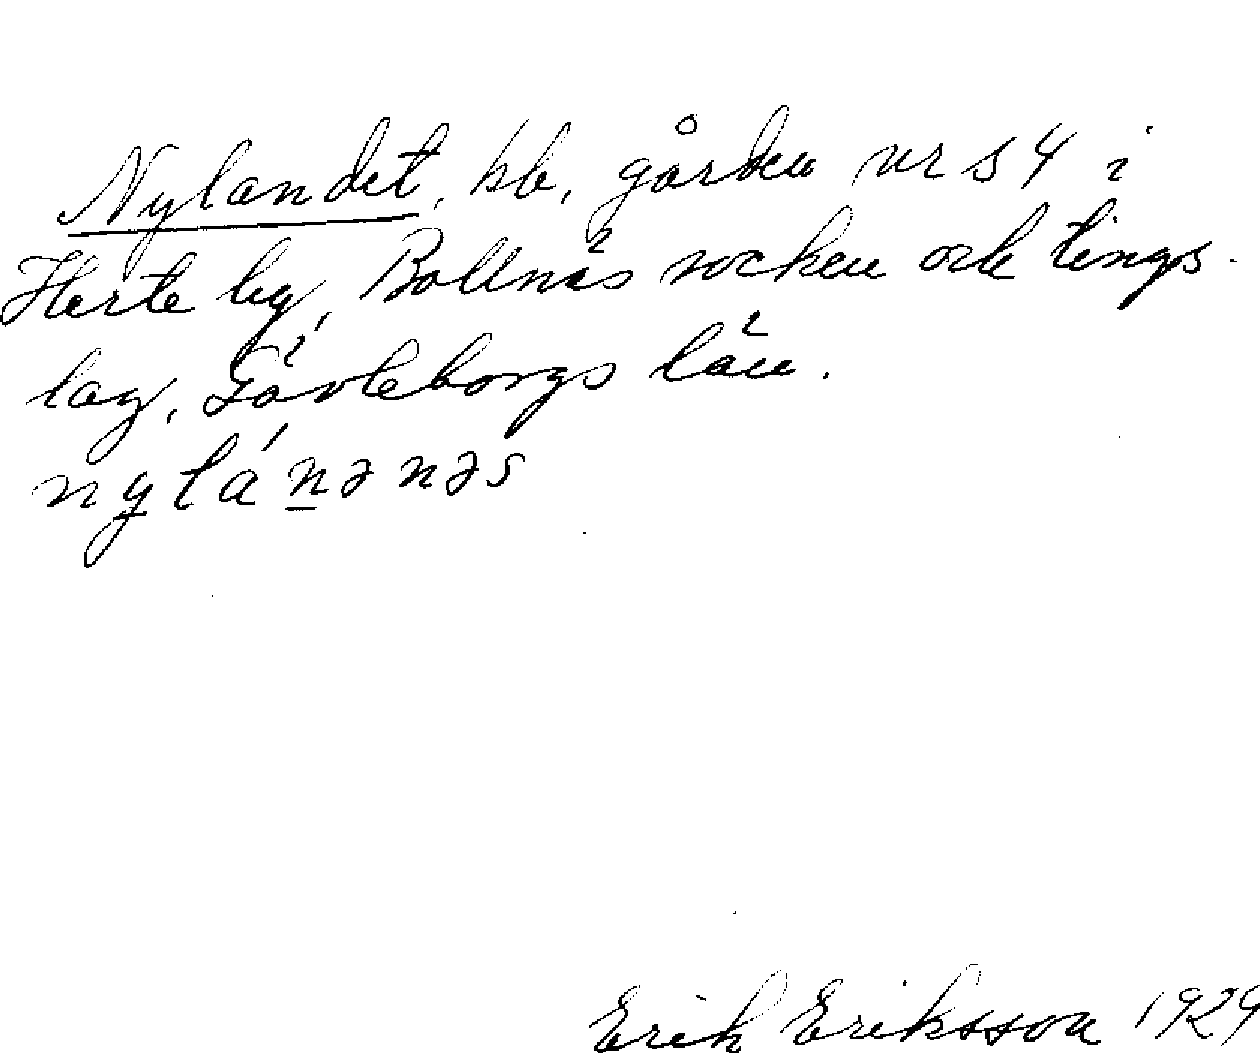 Nylandet, hb, gården nr s 4 i
Herte by, Bollnäs socken ock tings-
lag, Gävleborgs län.
nylánənəs
Erik Eriksson 1929